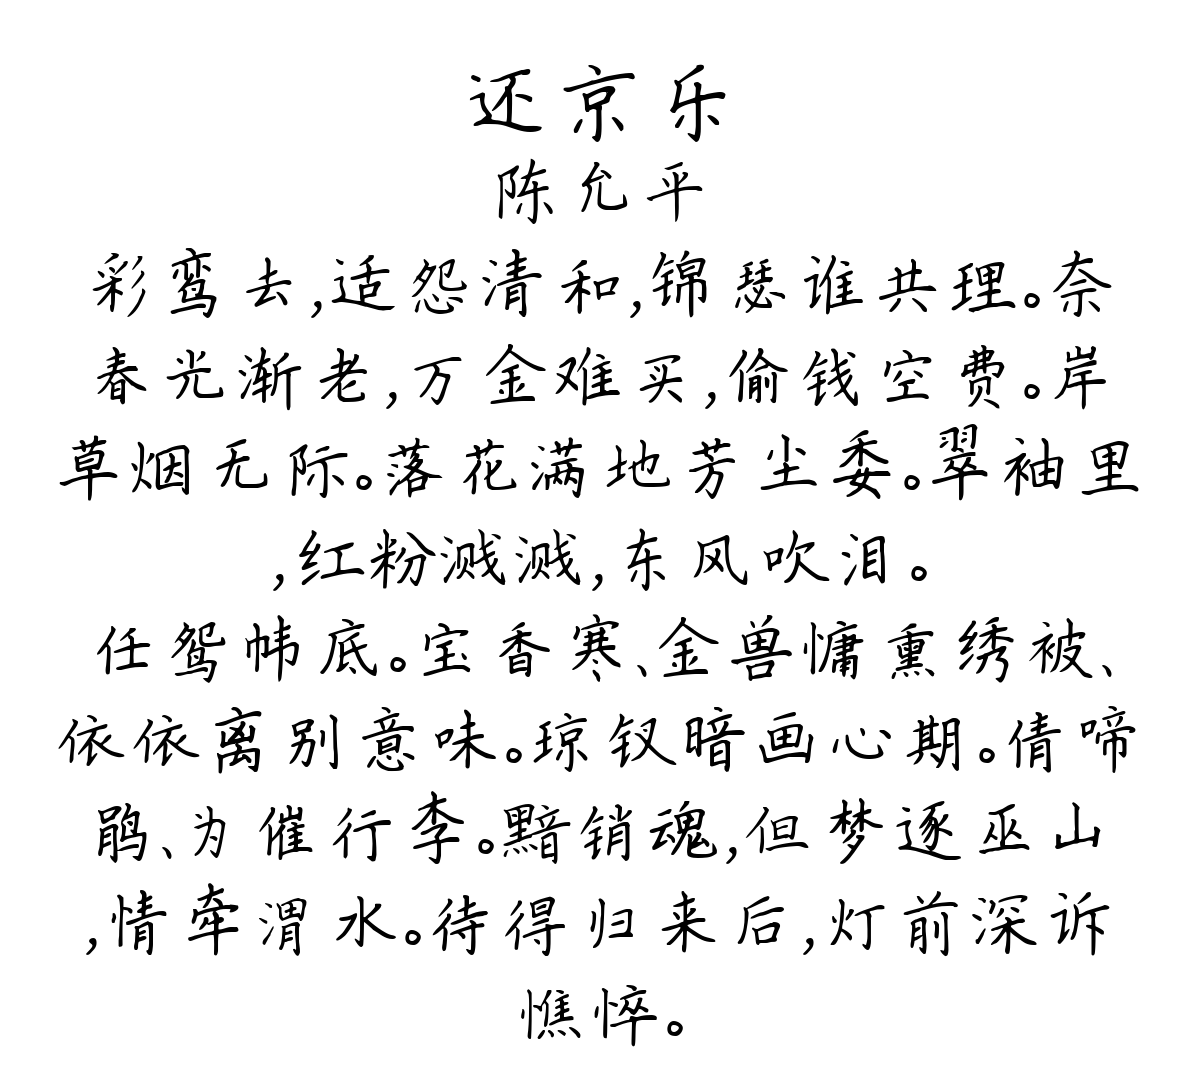 还京乐
陈允平
彩鸾去,适怨清和,锦瑟谁共理。奈
春光渐老,万金难买,偷钱空费。岸
草烟无际。落花满地芳尘委。翠袖里
,红粉溅溅,东风吹泪。
任鸳帏底。宝香寒、金兽慵熏绣被、
依依离别意味。琼钗暗画心期。倩啼
鹃、为催行李。黯销魂,但梦逐巫山
,情牵渭水。待得归来后,灯前深诉
憔悴。